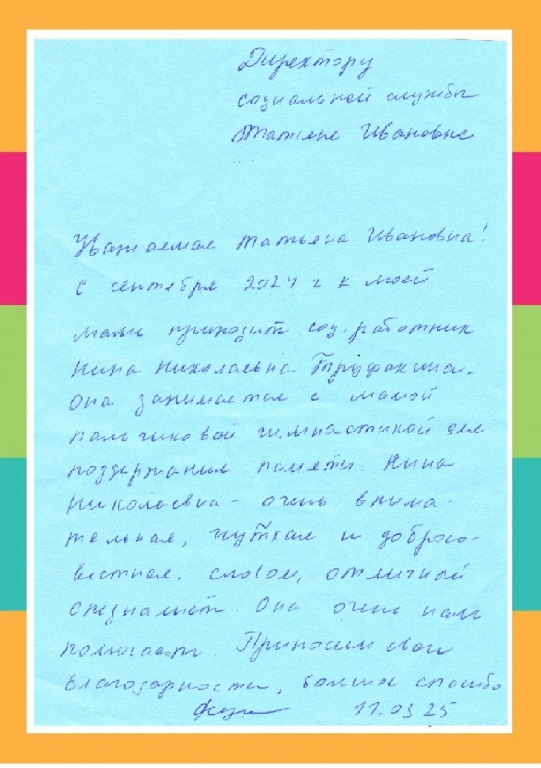 Директору
социальной службы
Татьяне Ивановне
Уважаемая Татьяна Ивановна!
С сентября 2024 г к моей
маме приходит соц. работник
Нина Николаевна Труфакина.
Она занимается с мамой
пальчиковой гимнастикой для
поддержания памяти. Нина
Николаевна - очень внима-
тельная, чуткая и добросо-
вестная. Словом, отличный
специалист. Она очень нам
помогает. Приносим свои
благодарности, большое спасибо
11.03 25